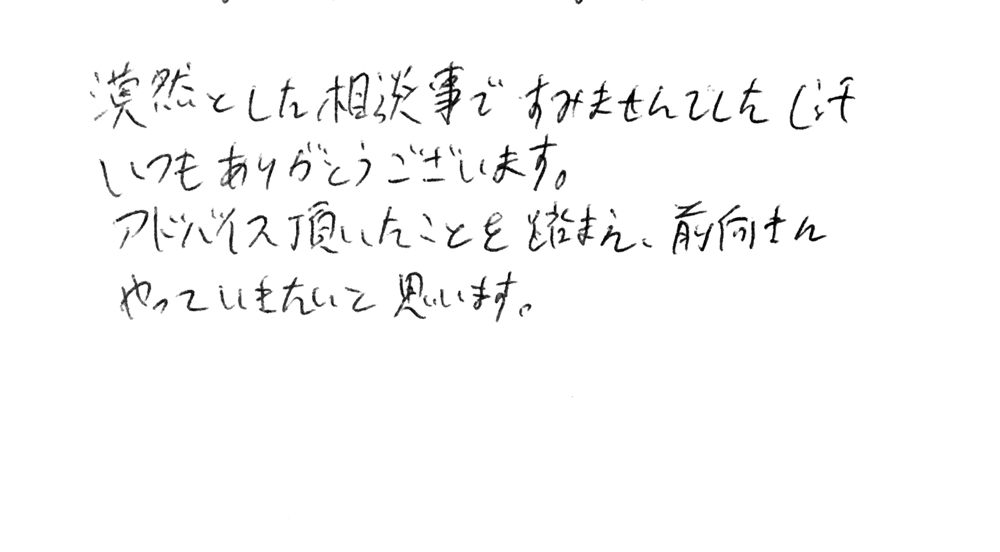 漠然とした相談事ですみませんでした(汗
いつもありがとうございます。
アドバイス頂いたことを踏まえ、前向きに
やっていきたいと思います。